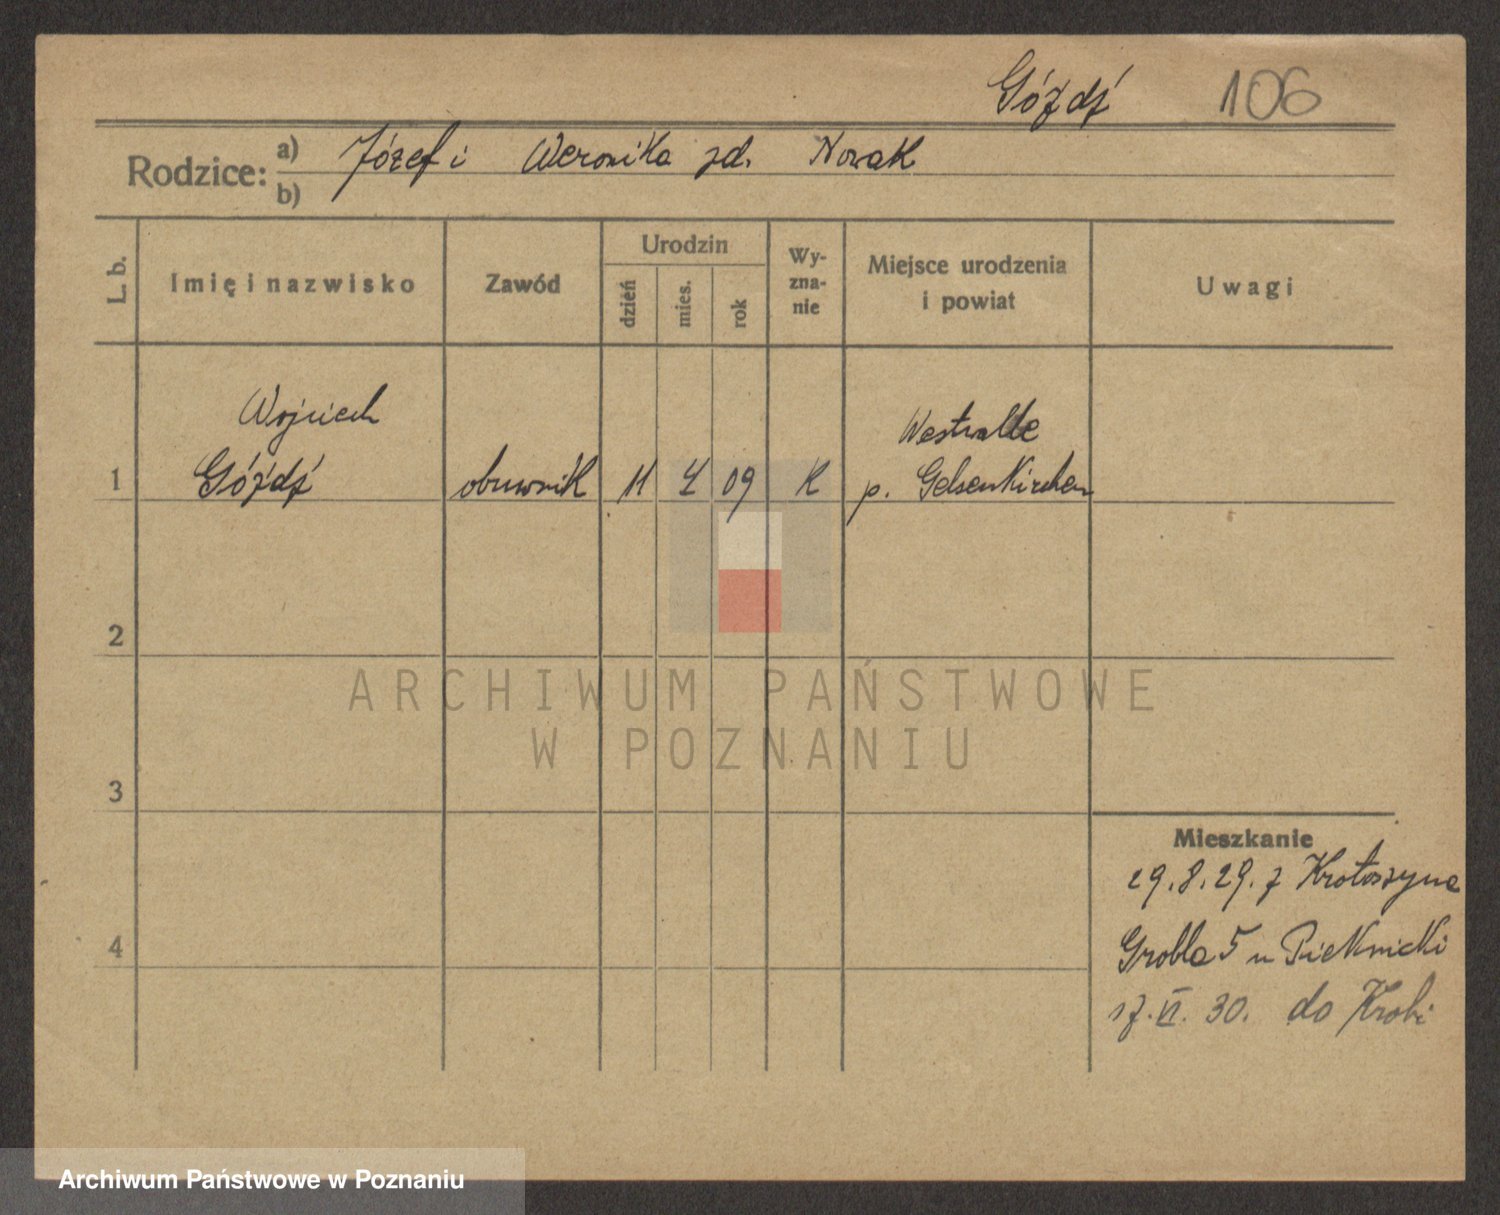 Góźdź 106
Rodzice: a) Józef i Weronika zd. Nowak
b)
L. b. Imię i nazwisko Zawód Urodzin dzień mies. rok Wy-zna-nie Miejsce urodzenia i powiat Uwagi
Wojciech Westwalde
1 Góźdź obuwnik 11 4 09 K p. Gelsenkirchen
2
ARCHIWUM PAŃSTWOWE
W POZNANIU
3
Mieszkanie
29.8.29. z Krotoszyna
4 Grobla 5 u Pieknicki
17.VI.30. do Krobi
Archiwum Państwowe w Poznaniu